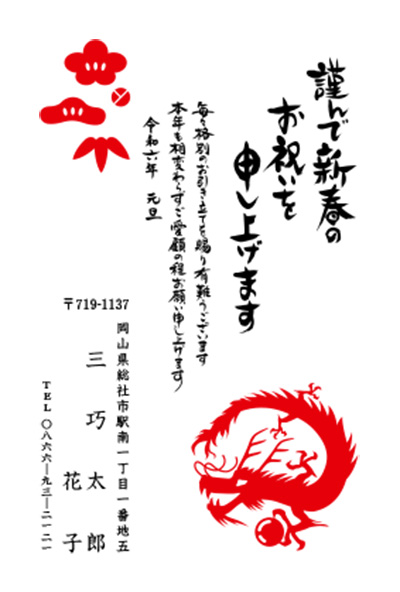 謹んで新春の
お祝いを
申し上げます
毎々格別のお引き立てを賜り有難うございます
本年も相変わらずご愛顧の程お願い申し上げます
令和六年 元旦
〒719-1137
岡山県総社市駅南一丁目一番地五
三巧太郎
花子
TEL 〇八六六―九三―二一二一